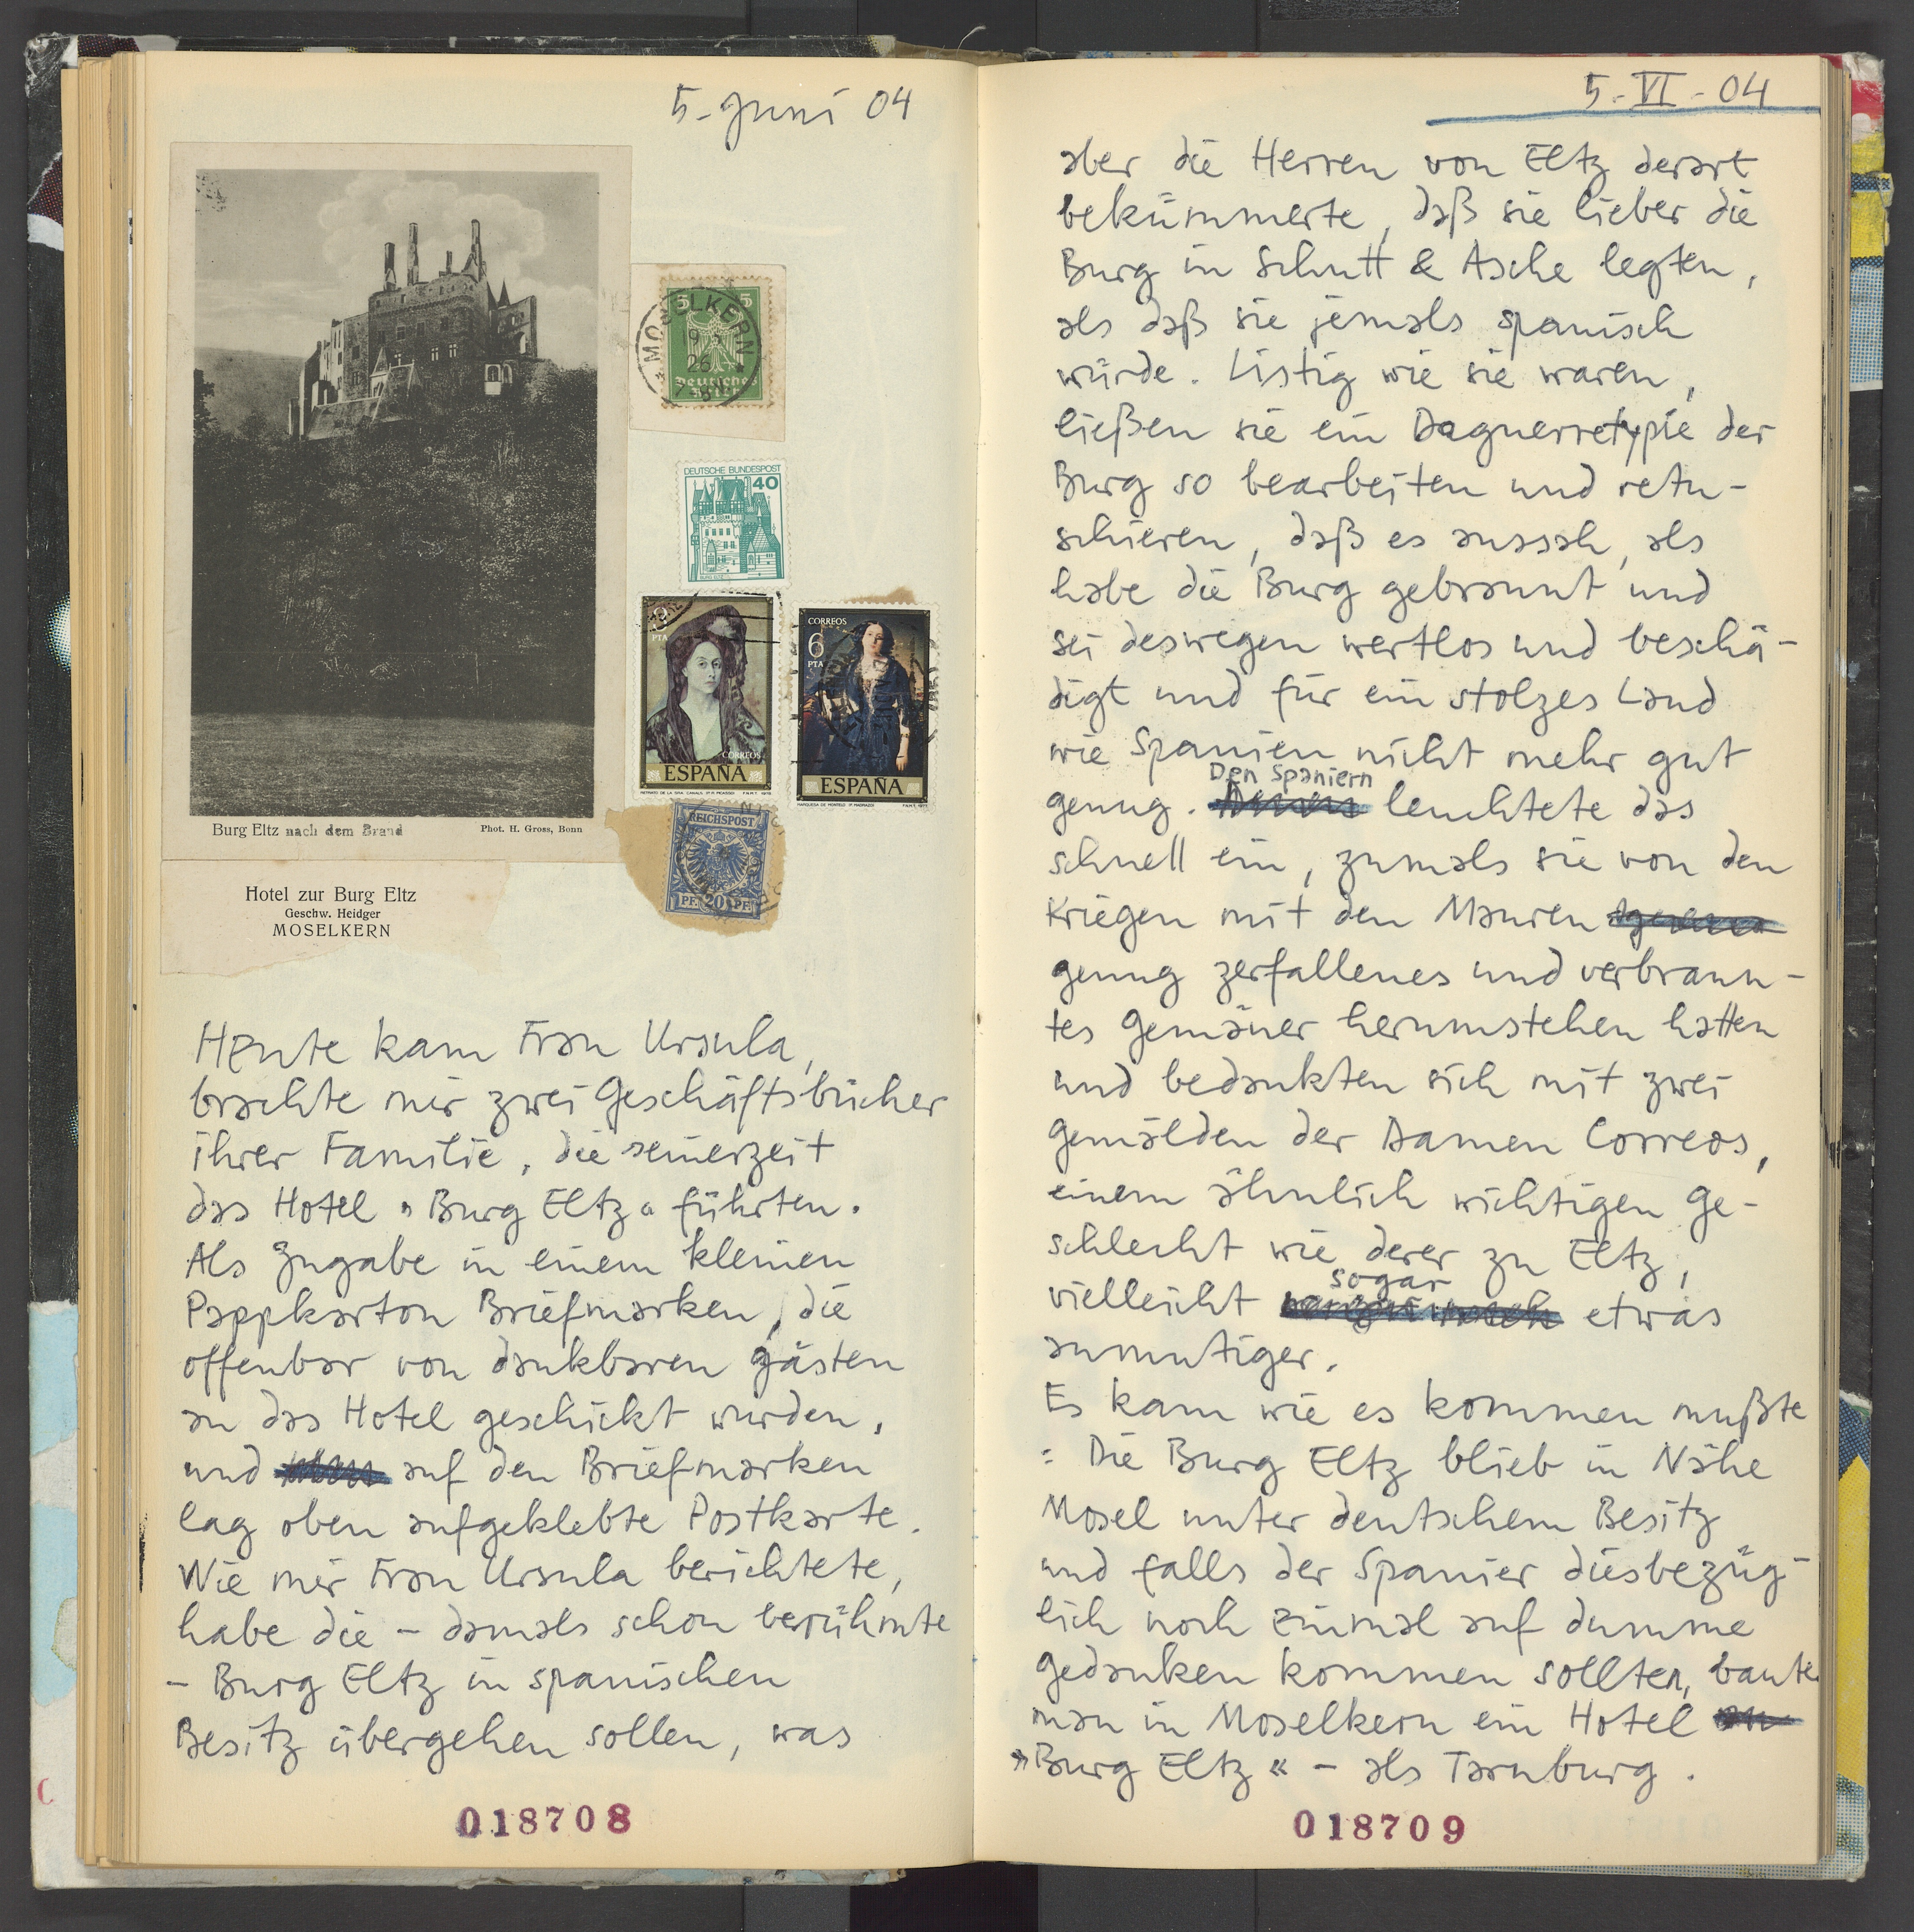 5. Juni 04
Burg Eltz nach dem Brand
Phot. H. Gross, Bonn
Hotel zur Burg Eltz
Geschw. Heidger
MOSELKERN
5 5
MOSELKERN
26
Deutsches
DEUTSCHE BUNDESPOST
40
BURG ELTZ
3
PTA
CORREOS
ESPAÑA
CORREOS
6
PTA
ESPAÑA
REICHSPOST
PF. 20 PF.
Heute kam Frau Ursula,
brachte mir zwei Geschäftsbücher
ihrer Familie, die seinerzeit
das Hotel »Burg Eltz« führten.
Als Zugabe in einem kleinen
Pappkarton Briefmarken, die
offenbar von dankbaren Gästen
an das Hotel geschickt wurden,
und auf den Briefmarken
lag oben aufgeklebte Postkarte.
Wie mir Frau Ursula berichtete,
habe die – damals schon berühmte
– Burg Eltz in spanischen
Besitz übergehen sollen, was
018708
5.-VI-04
aber die Herren von Eltz derart
bekümmerte, daß sie lieber die
Burg in Schutt & Asche legten,
als daß sie jemals spanisch
würde. Listig wie sie waren,
ließen sie ein Daguerretypie der
Burg so bearbeiten und retu-
schieren, daß es aussah, als
habe die Burg gebrannt und
sei deswegen wertlos und beschä-
digt und für ein stolzes Land
wie Spanien nicht mehr gut
genug. Den Spaniern leuchtete das
schnell ein, zumals sie von den
Kriegen mit den Mauren
genug zerfallenes und verbrann-
tes Gemäuer herumstehen hatten
und bedankten sich mit zwei
Gemälden der Damen Correos,
einem ähnlich wichtigen Ge-
schlecht wie derer zu Eltz,
vielleicht sogar etwas
anmutiger.
Es kam wie es kommen mußte
: Die Burg Eltz blieb in Nähe
Mosel unter deutschem Besitz
und falls der Spanier diesbezüg-
lich noch einmal auf dumme
Gedanken kommen sollten, baute
man in Moselkern ein Hotel
»Burg Eltz« – als Tarnburg.
018709